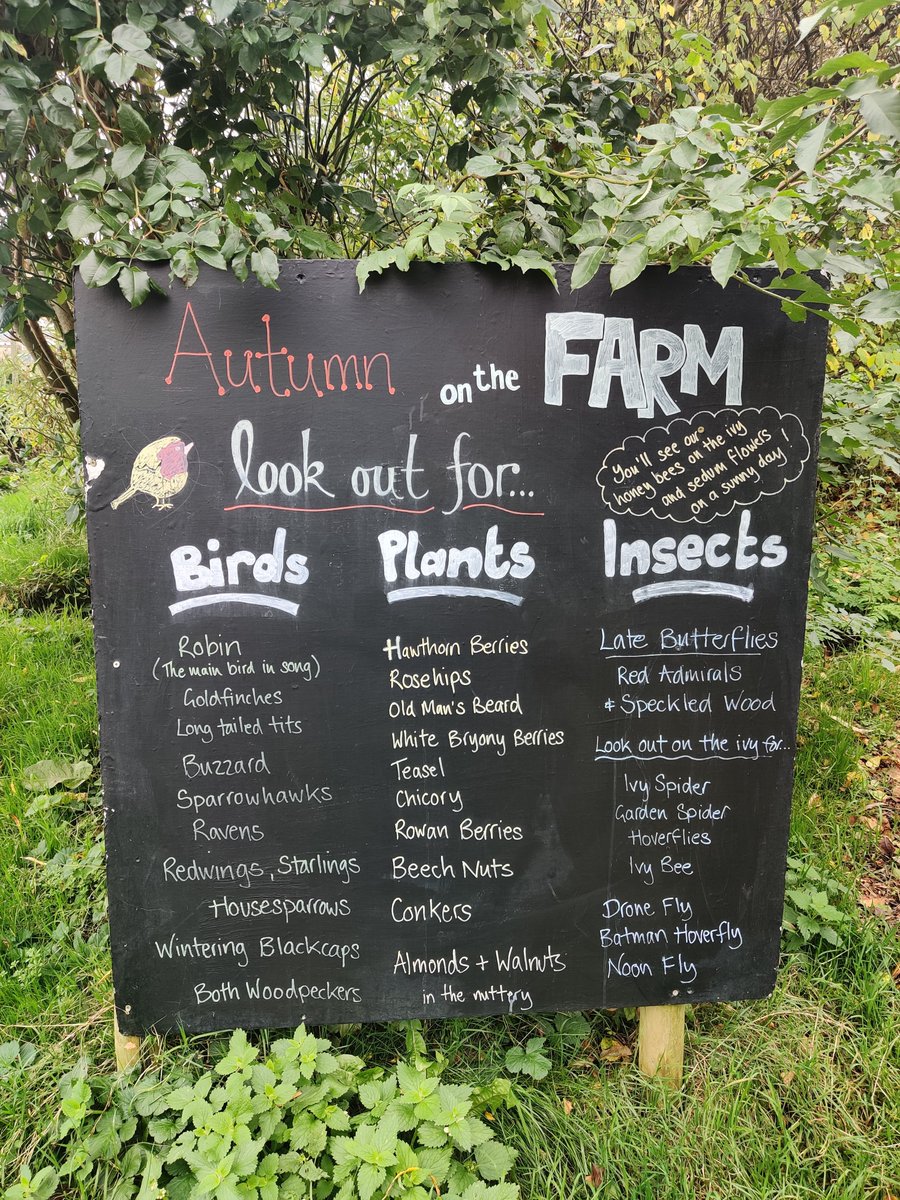 Autumn on the FARM
look out for...
You'll see our
honey bees on the ivy
and sedum flowers
on a sunny day!
Birds
Robin
(The main bird in song)
Goldfinches
Long tailed tits
Buzzard
Sparrowhawks
Ravens
Redwings, Starlings
Housesparrows
Wintering Blackcaps
Both Woodpeckers
Plants
Hawthorn Berries
Rosehips
Old Man's Beard
White Bryony Berries
Teasel
Chicory
Rowan Berries
Beech Nuts
Conkers
Almonds + Walnuts
in the nuttery
Insects
Late Butterflies
Red Admirals
& Speckled Wood
Look out on the ivy for...
Ivy Spider
Garden Spider
Hoverflies
Ivy Bee
Drone Fly
Batman Hoverfly
Noon Fly